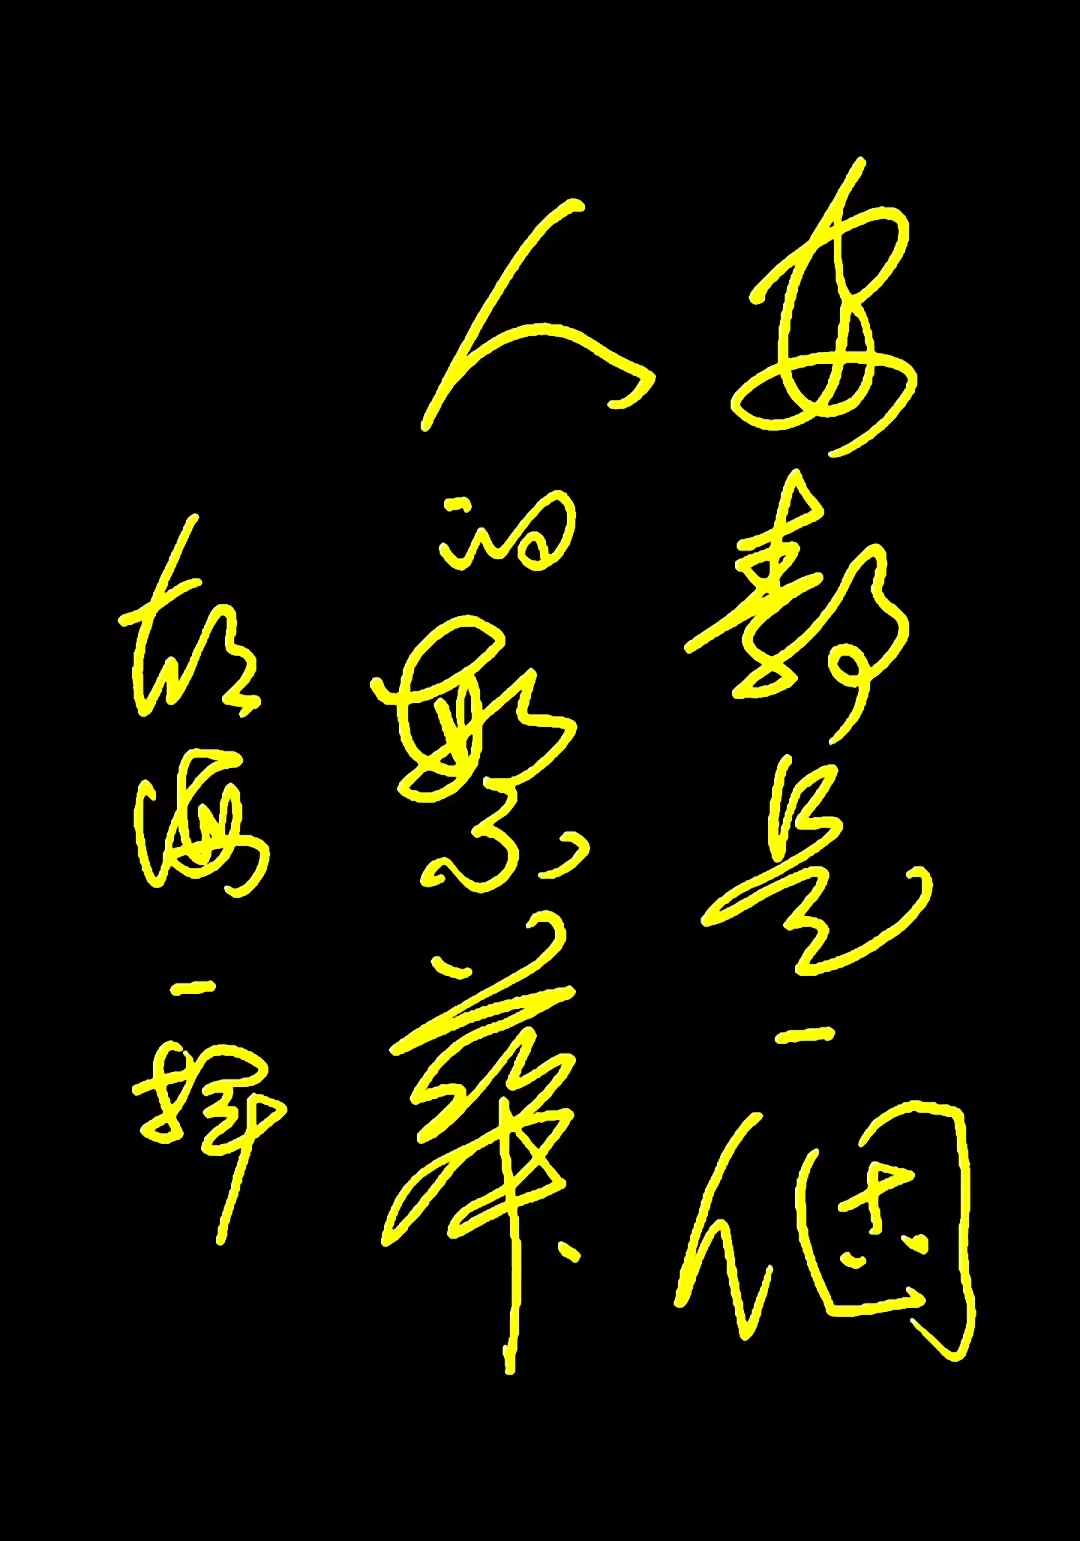 安靜是一個
人的繁華
胡海一